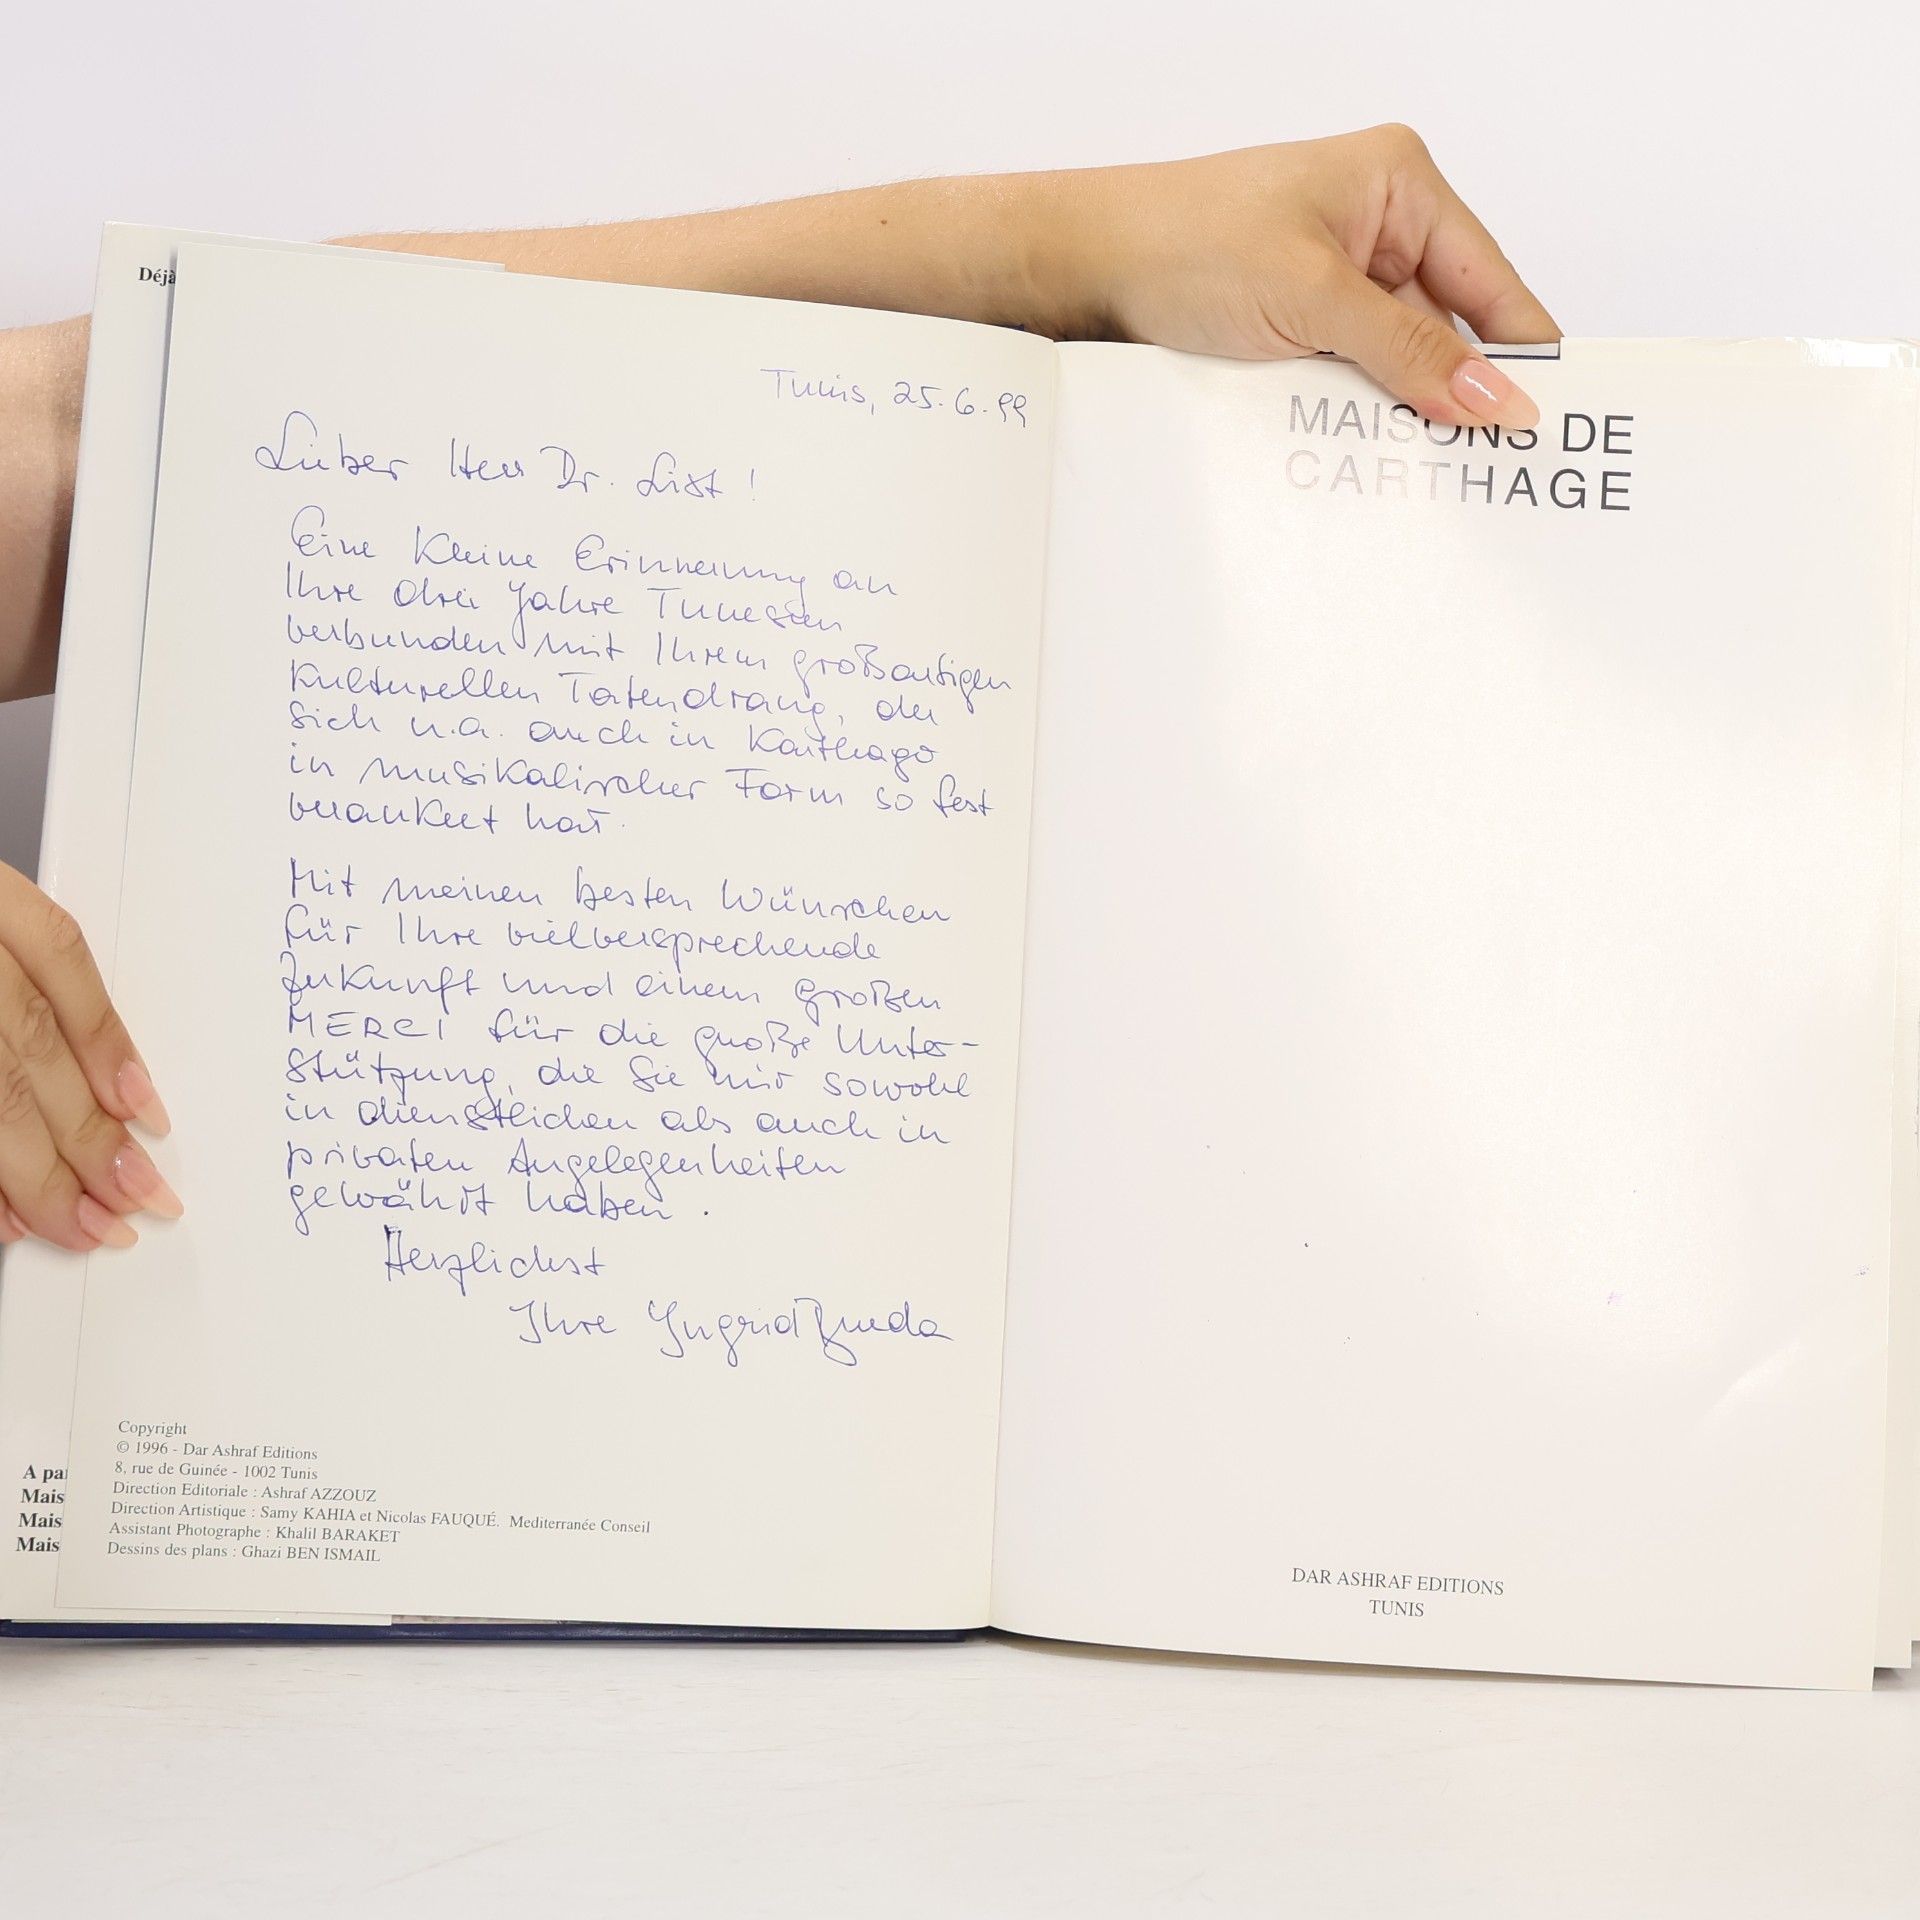 Déjà
Tunis, 25.6.99
Lieber Herr Dr. List!
Eine kleine Erinnerung an
Ihre drei Jahre Tunesien
verbunden mit Ihrem großartigen
kulturellen Tatendrang, der
sich u.a. auch in Karthago
in musikalischer Form so fest
verankert hat.
Mit meinen besten Wünschen
für Ihre vielversprechende
Zukunft und einem großen
MERCI für die große Unter-
stützung, die Sie mir sowohl
in dienstlichen als auch in
privaten Angelegenheiten
gewährt haben.
Herzlichst
Ihre Yngrid
Copyright
© 1996 - Dar Ashraf Editions
8, rue de Guinée - 1002 Tunis
Direction Editoriale : Ashraf AZZOUZ
Direction Artistique : Samy KAHIA et Nicolas FAUQUÉ. Mediterranée Conseil
Assistant Photographe : Khalil BARAKET
Dessins des plans : Ghazi BEN ISMAIL
A pa
Mais
Mais
Mais
MAISONS DE
CARTHAGE
DAR ASHRAF EDITIONS
TUNIS